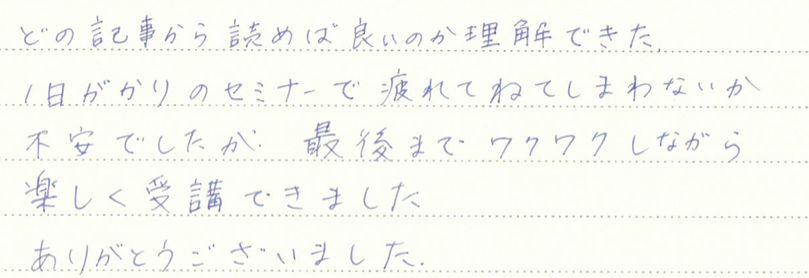 どの記事から読めば良いのか理解できた.
1日がかりのセミナーで疲れてねてしまわないか
不安でしたが. 最後までワクワクしながら
楽しく受講できました
ありがとうございました.